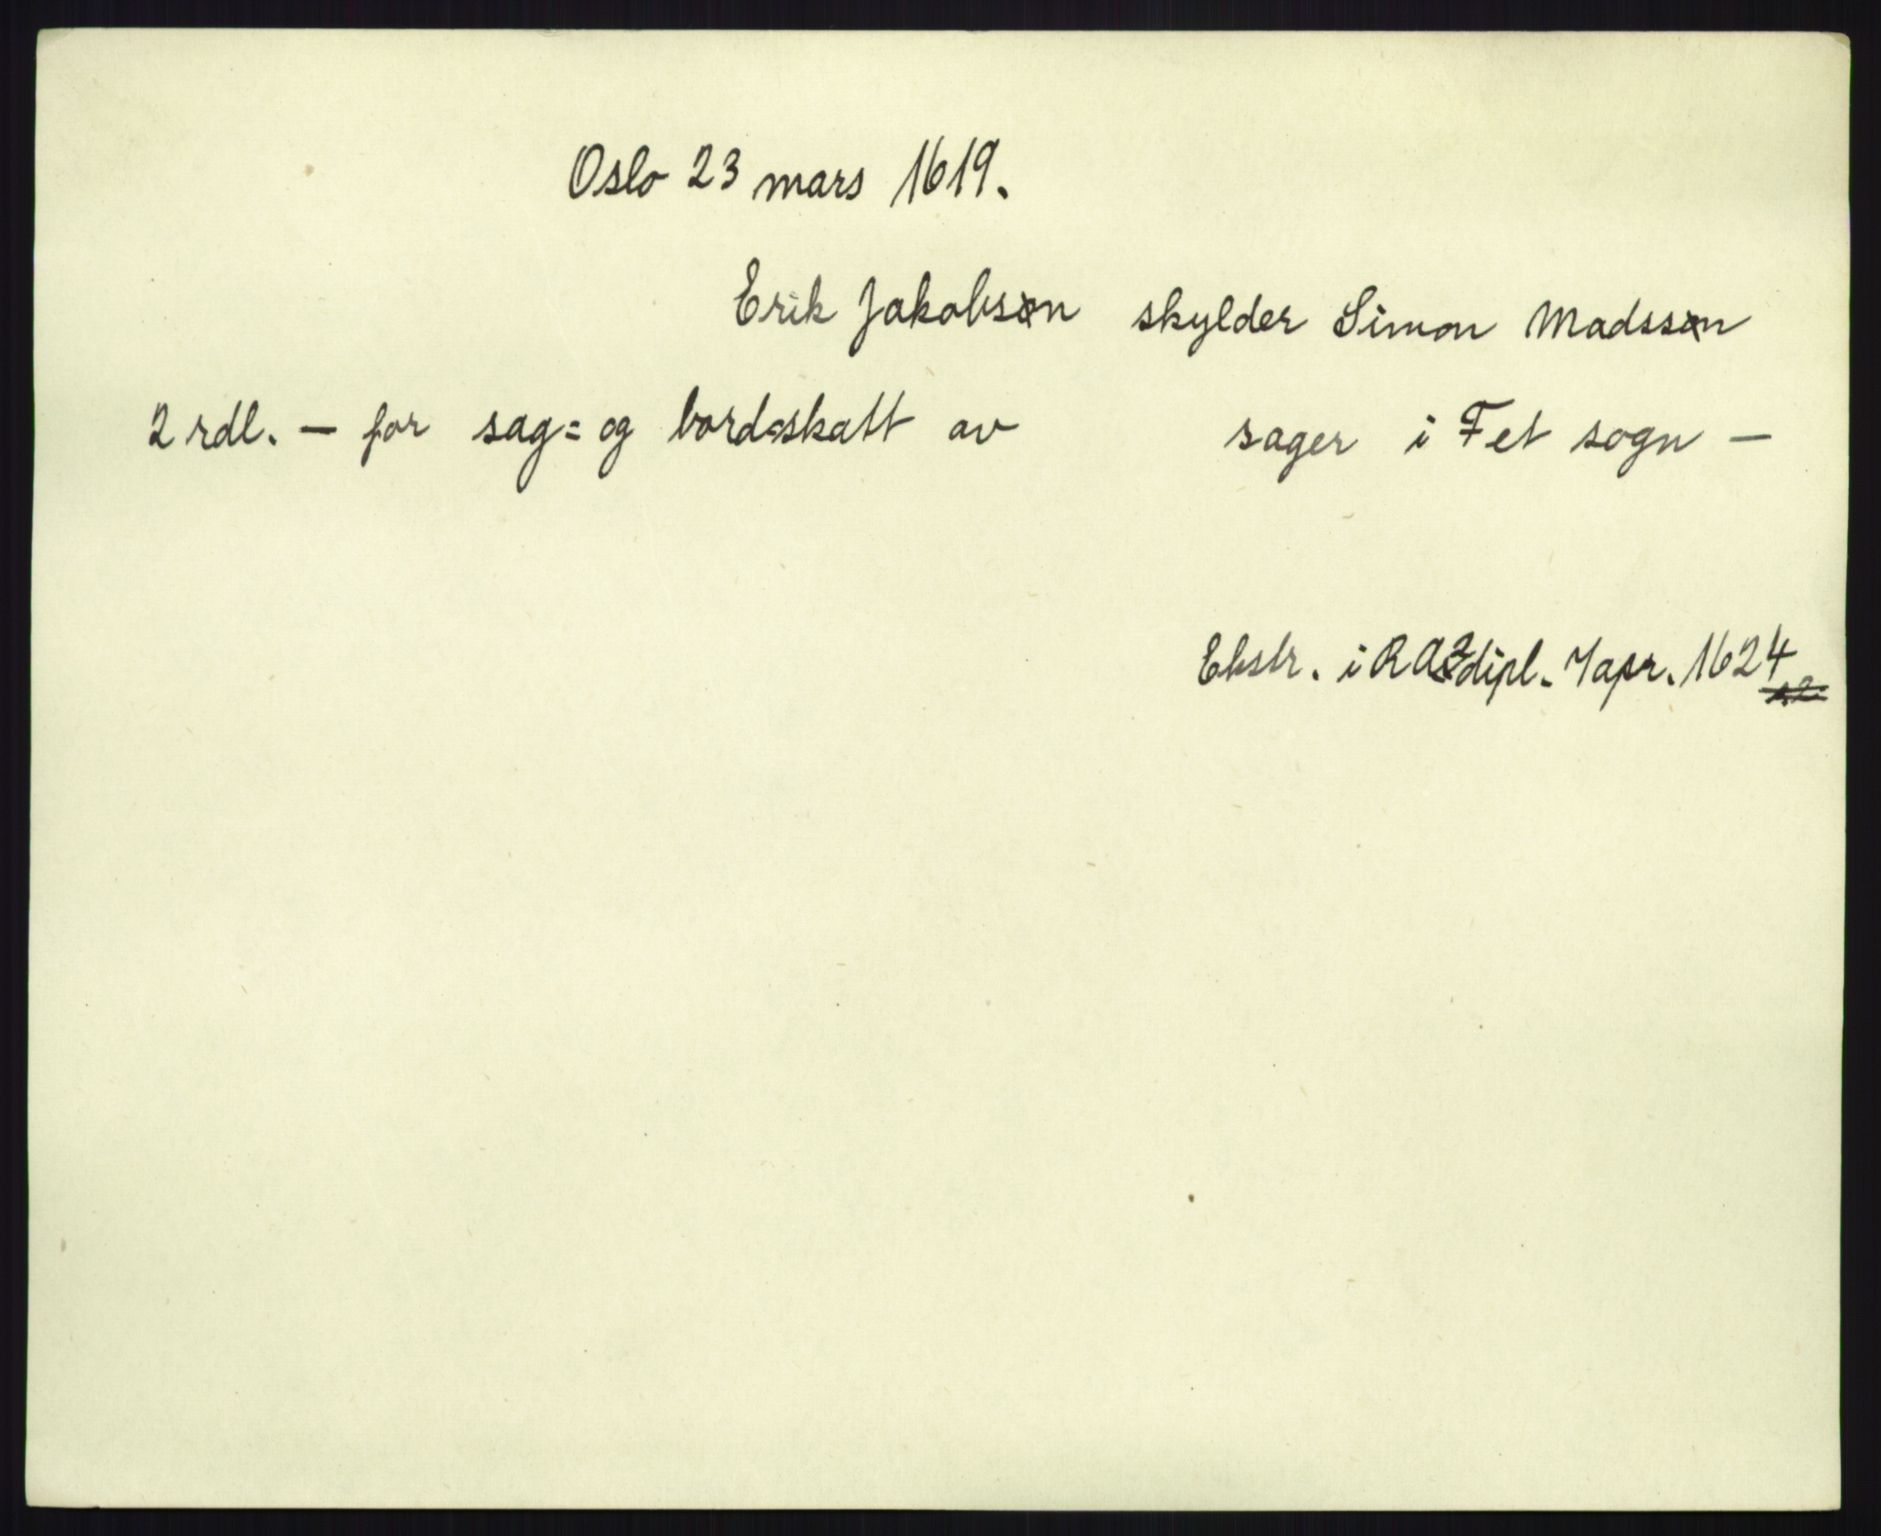 Oslo 23 mars 1619.
Erik Jakobsøn skylder Simon Madssøn
2 rdl. — for sag= og bord=skatt av sager i Fet sogn —
Ekstr. i RA² dipl. 7 apr. 1624